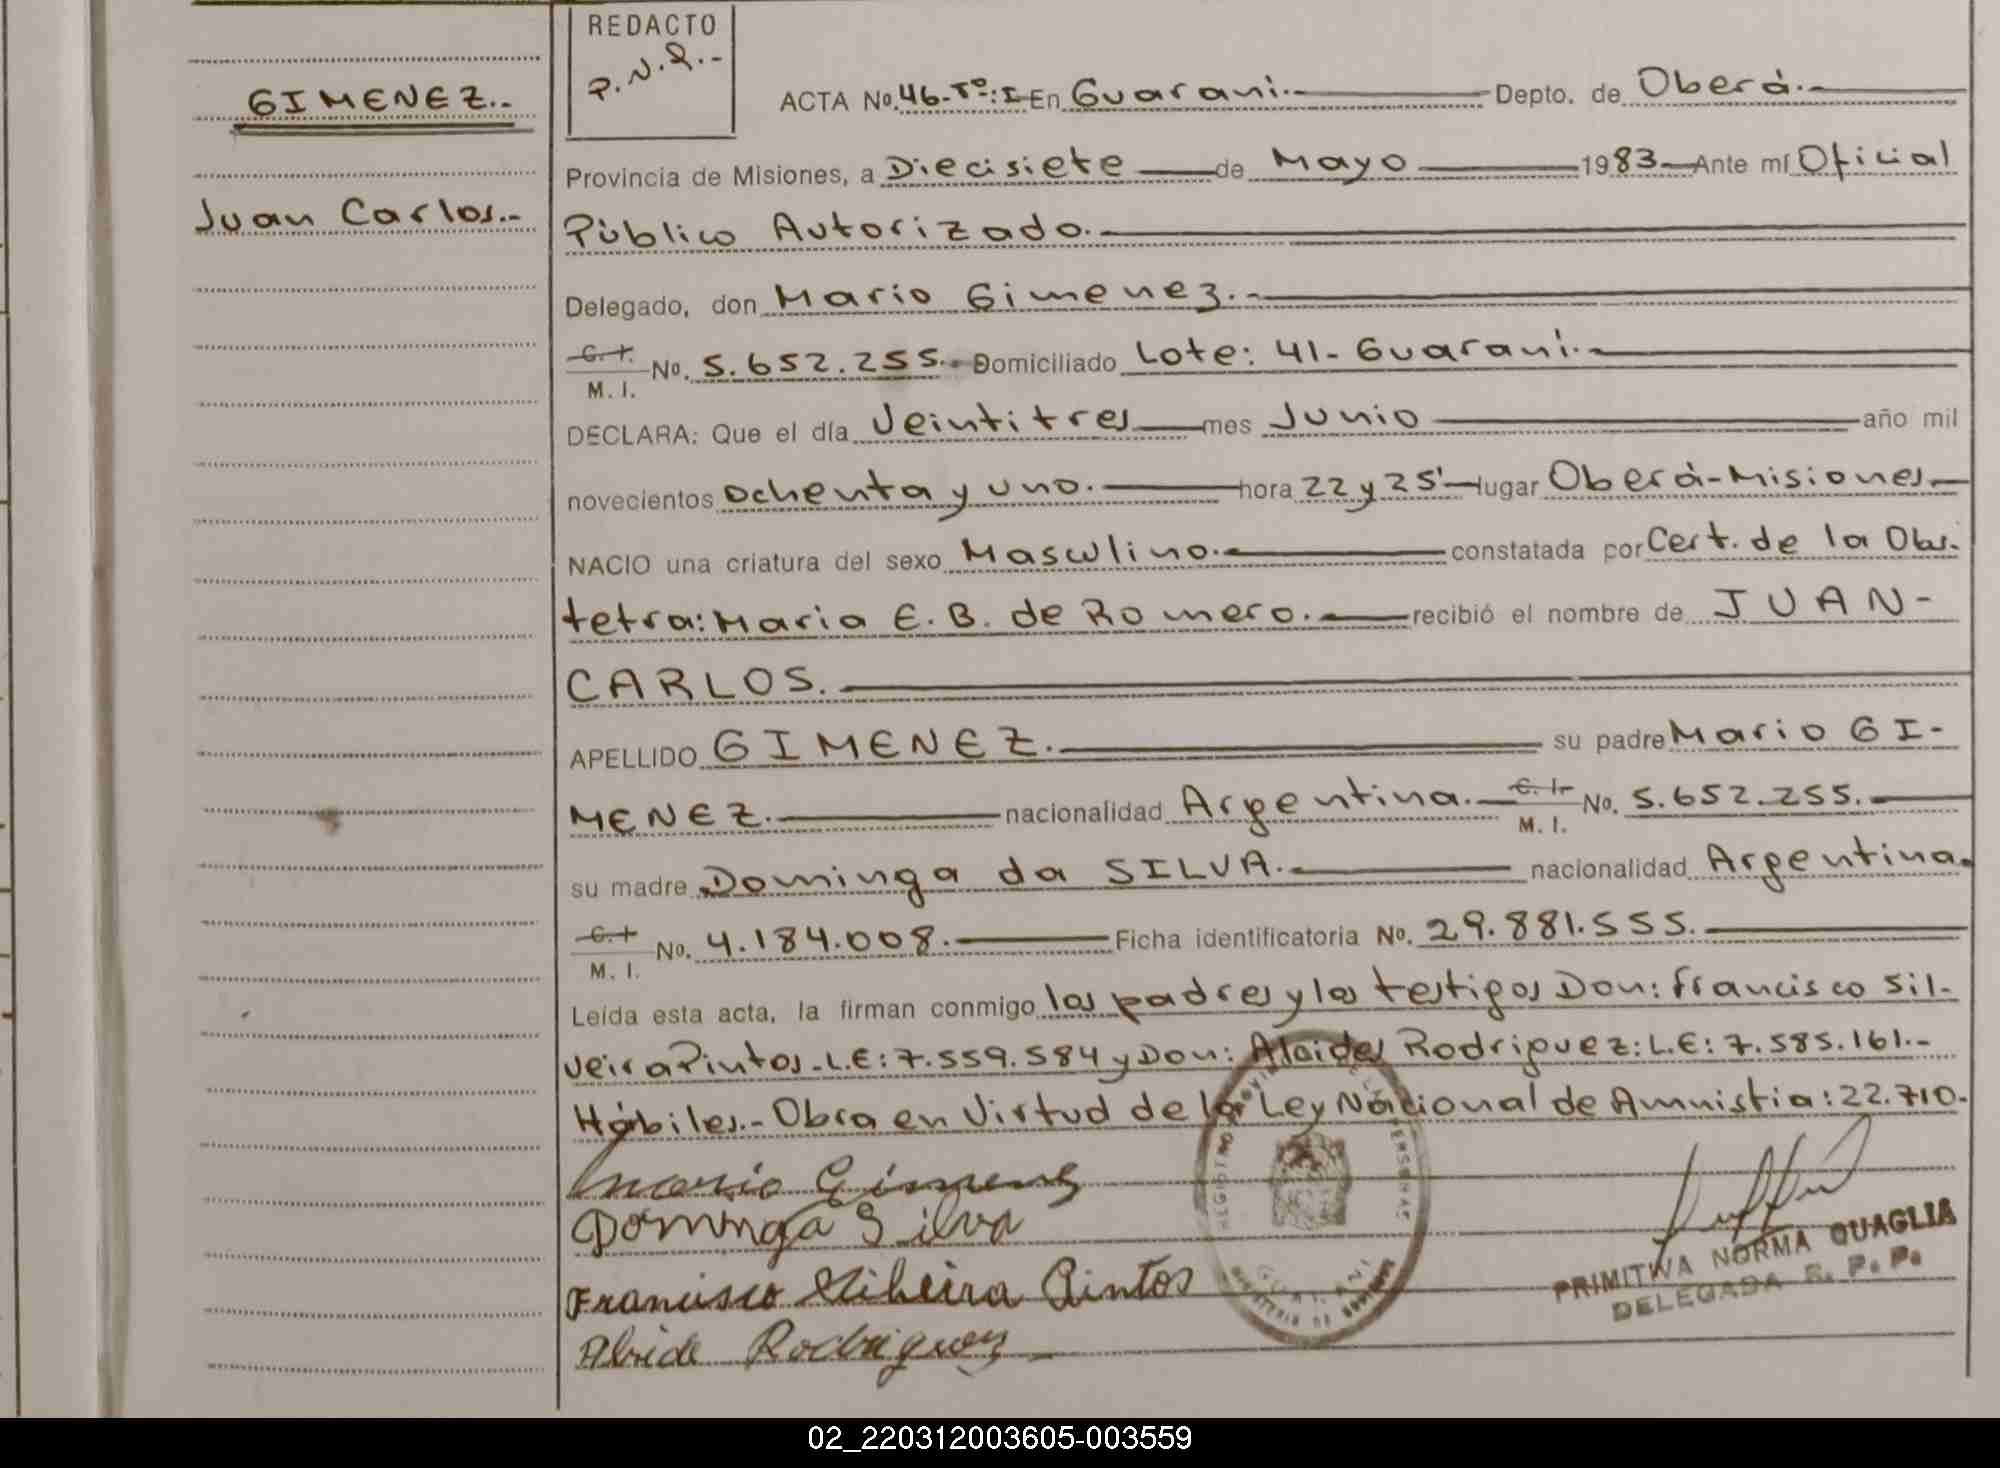 REDACTO
P.N.Q.-
GIMENEZ.-
Juan Carlos.-
ACTA No. 46-Tº:I En Guaraní.- Depto. de Oberá.-
Provincia de Misiones, a Diecisiete de Mayo 1983 Ante mí Oficial
Público Autorizado.-
Delegado, don Mario Gimenez.-
C. I. / M. I. No. 5.652.255.- Domiciliado Lote: 41- Guaraní.-
DECLARA: Que el día Veintitres mes Junio año mil
novecientos ochenta y uno. hora 22 y 25' lugar Oberá-Misiones
NACIO una criatura del sexo Masculino.- constatada por Cert. de la Obs-
tetra: Maria E. B. de Romero.- recibió el nombre de JUAN-
CARLOS.-
APELLIDO GIMENEZ.- su padre Mario GI-
MENEZ.- nacionalidad Argentina.- C. I. / M. I. No. 5.652.255.-
su madre Dominga da SILVA.- nacionalidad Argentina.
C. I. / M. I. No. 4.184.008.- Ficha identificatoria No. 29.881.555.
Leída esta acta, la firman conmigo los padres y los testigos Don: Francisco Sil-
veira Pintos.-L.E: 7.559.584 y Don: Alcides Rodriguez: L.E: 7.585.161.-
Hábiles.- Obra en Virtud de la Ley Nacional de Amnistia: 22.710.
Mario Gimenez
Dominga Silva
Francisco Silbeira Pintos
Alside Rodriguez
GUARANI
PRIMITIVA NORMA QUAGLIA
DELEGADA R. P. P.
02_220312003605-003559